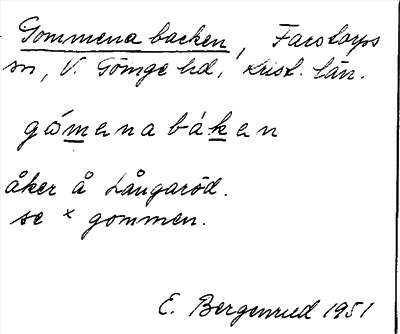 Gommena backen, Farstorps
sn, V. Göinge hd, Krist. län.
gómenabáken
åker å Långaröd.
se × gommen.
E. Bergenrud 1951